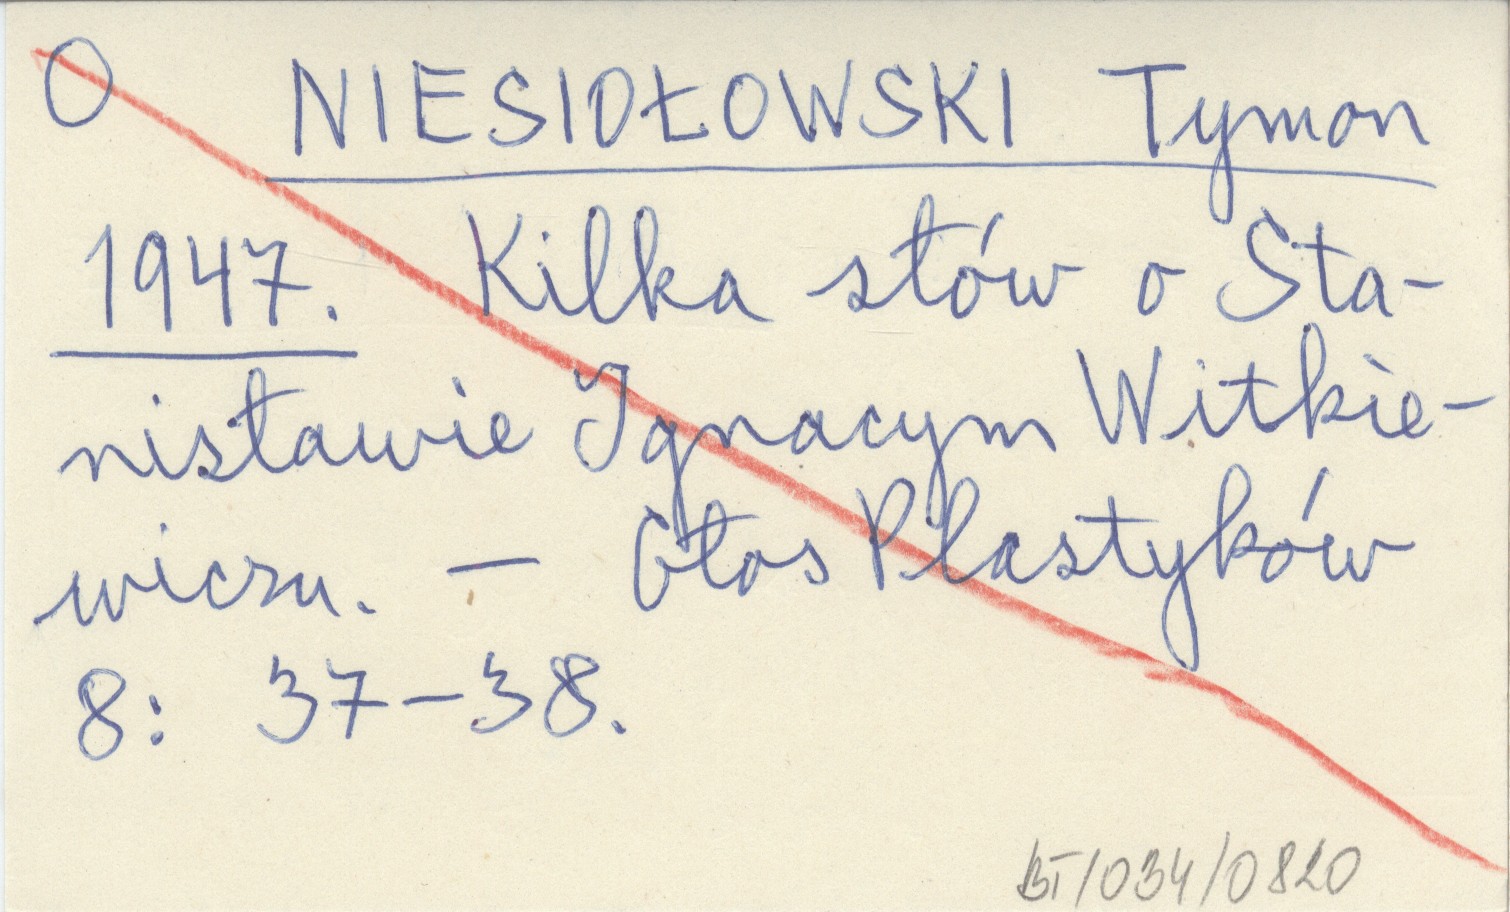 O NIESIOŁOWSKI Tymon
1947. Kilka słów o Sta-
nisławie Ignacym Witkie-
wiczu. — Głos Plastyków
8: 37-38.
BT/034/0820